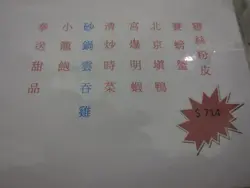 雞絲粉皮
賽螃蟹
北京填鴨
宮爆明蝦
清炒時菜
砂鍋雲吞雞
小籠飽
奉送甜品